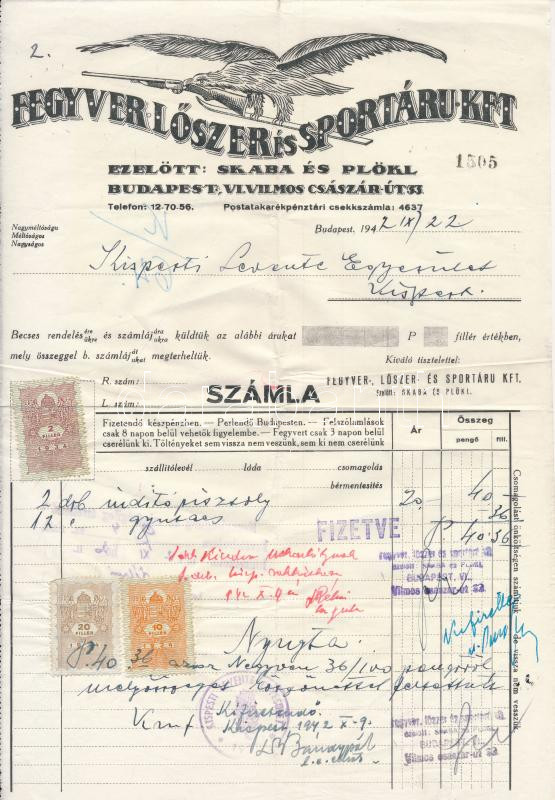 2.
FEGYVER-LŐSZER ÉS SPORTÁRU-KFT
EZELŐTT: SKABA ÉS PLÖKL
1505
BUDAPEST, VI. VILMOS CSÁSZÁR-ÚT 33
Telefon: 12-70-56. Postatakarékpénztári csekkszámla: 4637
Nagyméltóságu
Méltóságos
Nagyságos
Budapest, 1942 IX/22
Kispesti Levente Egyesület
Kispest.
Becses rendelésére ükre és számlájára ukra küldtük az alábbi árukat P fillér értékben,
mely összeggel b. számláját ukat megterheltük.
Kiváló tisztelettel:
R. szám:
FEGYVER-, LŐSZER- ÉS SPORTÁRU KFT.
EZELŐTT: SKABA ÉS PLÖKL.
L. szám:
SZÁMLA
Fizetendő készpénzben. — Perlendő Budapesten. — Felszólamlások
csak 8 napon belül vehetők figyelembe. — Fegyvert csak 3 napon belül
cserélünk ki. Töltényeket sem vissza nem veszünk, sem ki nem cserélünk
Ár
Összeg
pengő fill.
2
FILLÉR
1934
szállítólevél láda csomagolás
bérmentesítés
2 drb inditó pisztoly 20 - 40 -
12 " gyutacs - 36
P. 40.36
FIZETVE
Fegyver, lőszer és sportáru kft.
ezelőtt: SKABA és PLÖKL
BUDAPEST, VI.
Vilmos császár-út 33.
942 X. 9
Csomagolást önköltségen számítunk, de vissza nem veszünk.
20
FILLÉR
10
FILLÉR
Nyugta
P. 40 36 azaz Negyven 36/100 pengőről
melyösszeget köszönettel felvettük
Kmf
Kifizetendő
Kispest 1942 X-9.
Fegyver, lőszer és sportáru kft.
ezelőtt: SKABA és PLÖKL
BUDAPEST, VI.
Vilmos császár-út 33.